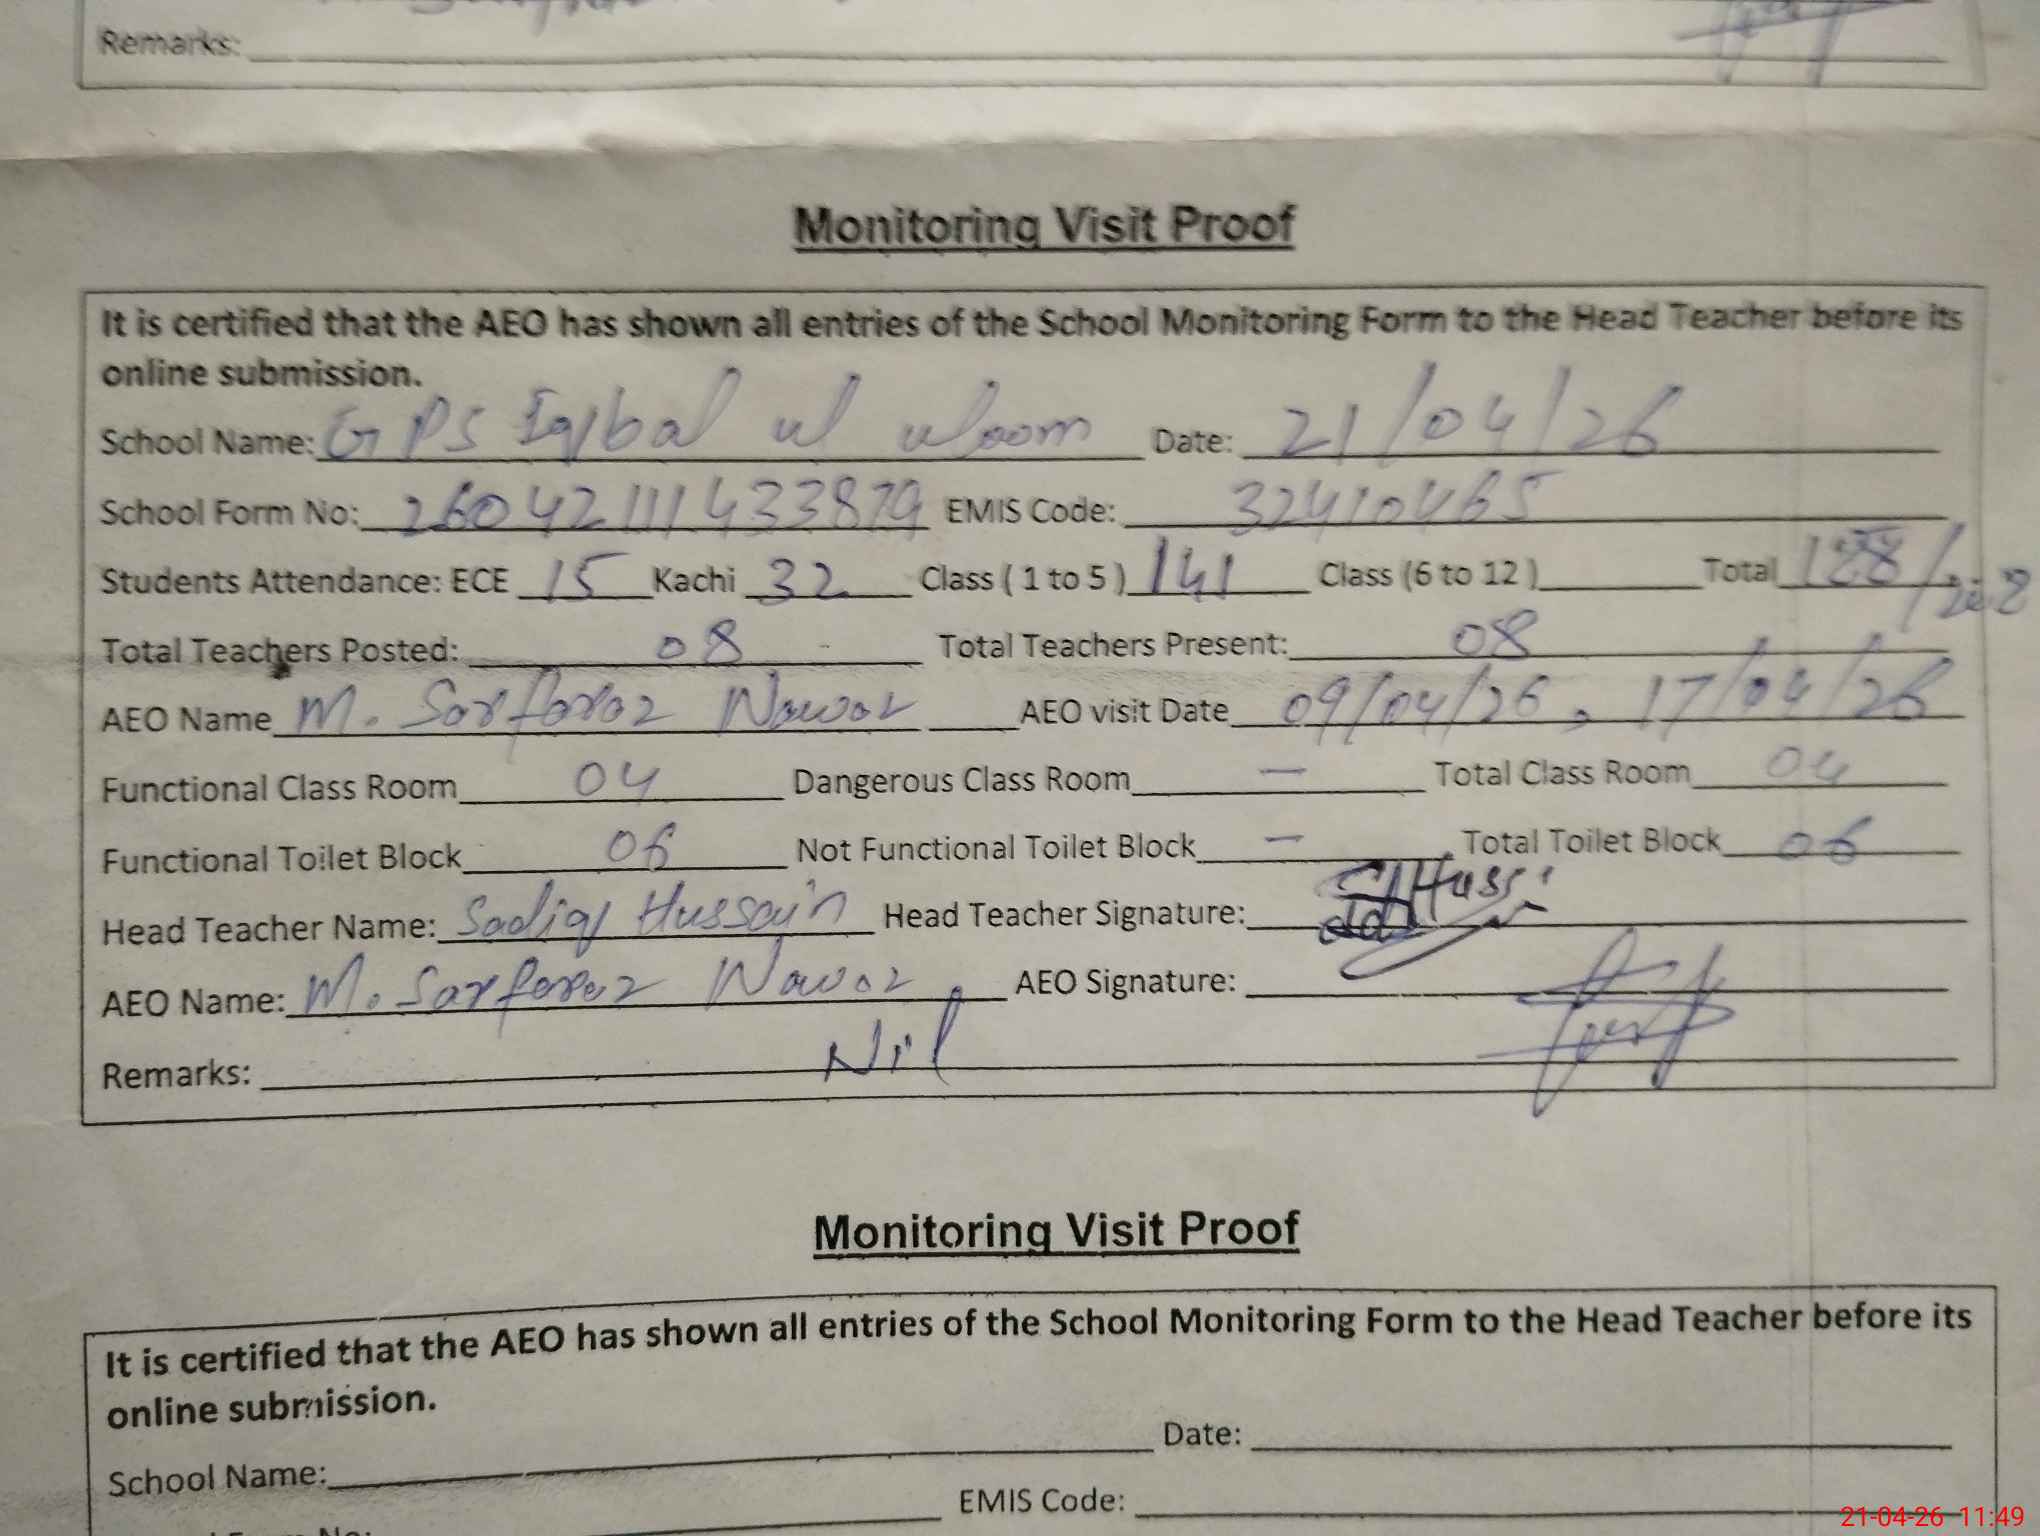 Remarks:
Monitoring Visit Proof
It is certified that the AEO has shown all entries of the School Monitoring Form to the Head Teacher before its
online submission.
School Name: GPS Iqbal ul uloom Date: 21/04/26
School Form No: 260421111433879 EMIS Code: 32410465
Students Attendance: ECE 15 Kachi 32 Class ( 1 to 5 ) 141 Class (6 to 12 ) Total 188/
Total Teachers Posted: 08 Total Teachers Present: 08
AEO Name M. Sarfaraz Nawaz AEO visit Date 09/04/26, 17/04/26
Functional Class Room 04 Dangerous Class Room — Total Class Room 04
Functional Toilet Block 06 Not Functional Toilet Block — Total Toilet Block 06
Head Teacher Name: Sadiq Hussain Head Teacher Signature:
AEO Name: M. Sarfaraz Nawaz AEO Signature:
Remarks: Nil
Monitoring Visit Proof
It is certified that the AEO has shown all entries of the School Monitoring Form to the Head Teacher before its
online submission.
School Name: Date:
EMIS Code:
21-04-26 11:49